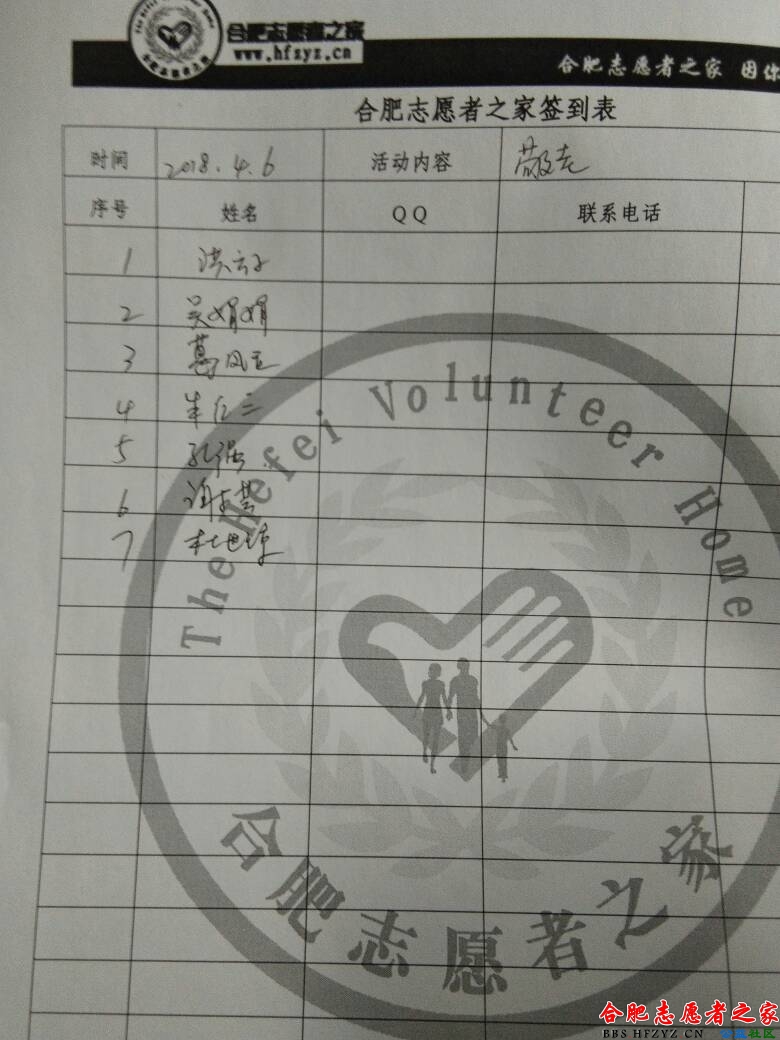 The Hefei Volunteer Home
合肥志愿者之家
合肥志愿者之家
www.hfzyz.cn
合肥志愿者之家 因你
合肥志愿者之家签到表
时间 2018.4.6 活动内容 敬老
序号 姓名 QQ 联系电话
1
2 吴娟娟
3 葛风
4 朱红三
5 孔强
6 谢
7
The Hefei Volunteer Home
合肥志愿者之家
合肥志愿者之家
BBS HFZYZ CN 社区